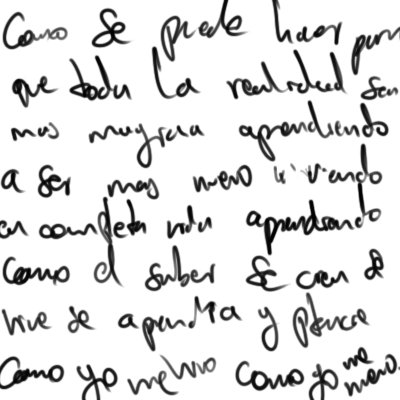 Como se puede hacer para
que toda la realidad sea
mas magica aprendiendo
a ser mas nuevo viviendo
en completa vida aprendiendo
Como el saber se crea
vive se aprendia y
Como yo mismo como yo me